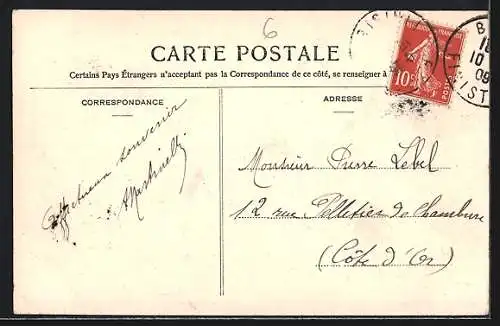 6
CARTE POSTALE
Certains Pays Étrangers n'acceptant pas la Correspondance de ce côté, se renseigner à
CORRESPONDANCE
Affectueux souvenir
AMartinelli
ADRESSE
Monsieur Pierre Lebel
12 rue Pelletier de Chambure
(Côte d'Or)
10
POSTES
B
18
10
09
FINIST